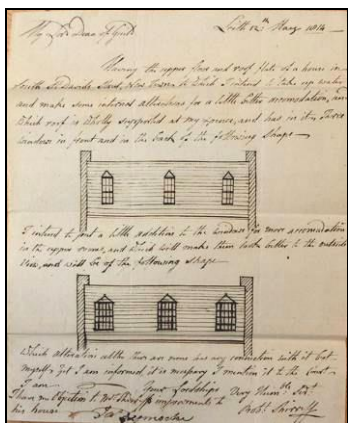 My Lord Dean of Guild Leith 12th May 1814
Having the upper floor and roof flats of a house in
South St Davids Street, New Town to which I intend to take up water
and make some internal alterations for a little better accomodation, and
which roof is wholly supported at my expence, and has in it Three
Windows in front and in the back of the following shape
I intend to put a little addition to the windows for more accomodation
in the upper rooms, and which will make them look better to the outside
view, and will be of the following shape
Which alteration altho there are none has any connection with it but
myself, yet I am informed, it is necessary I mention it to the Court
I am
Your Lordships Very Humble Svt
I have no objection to Mr Shirreff improvements to Robt Shirreff
his house